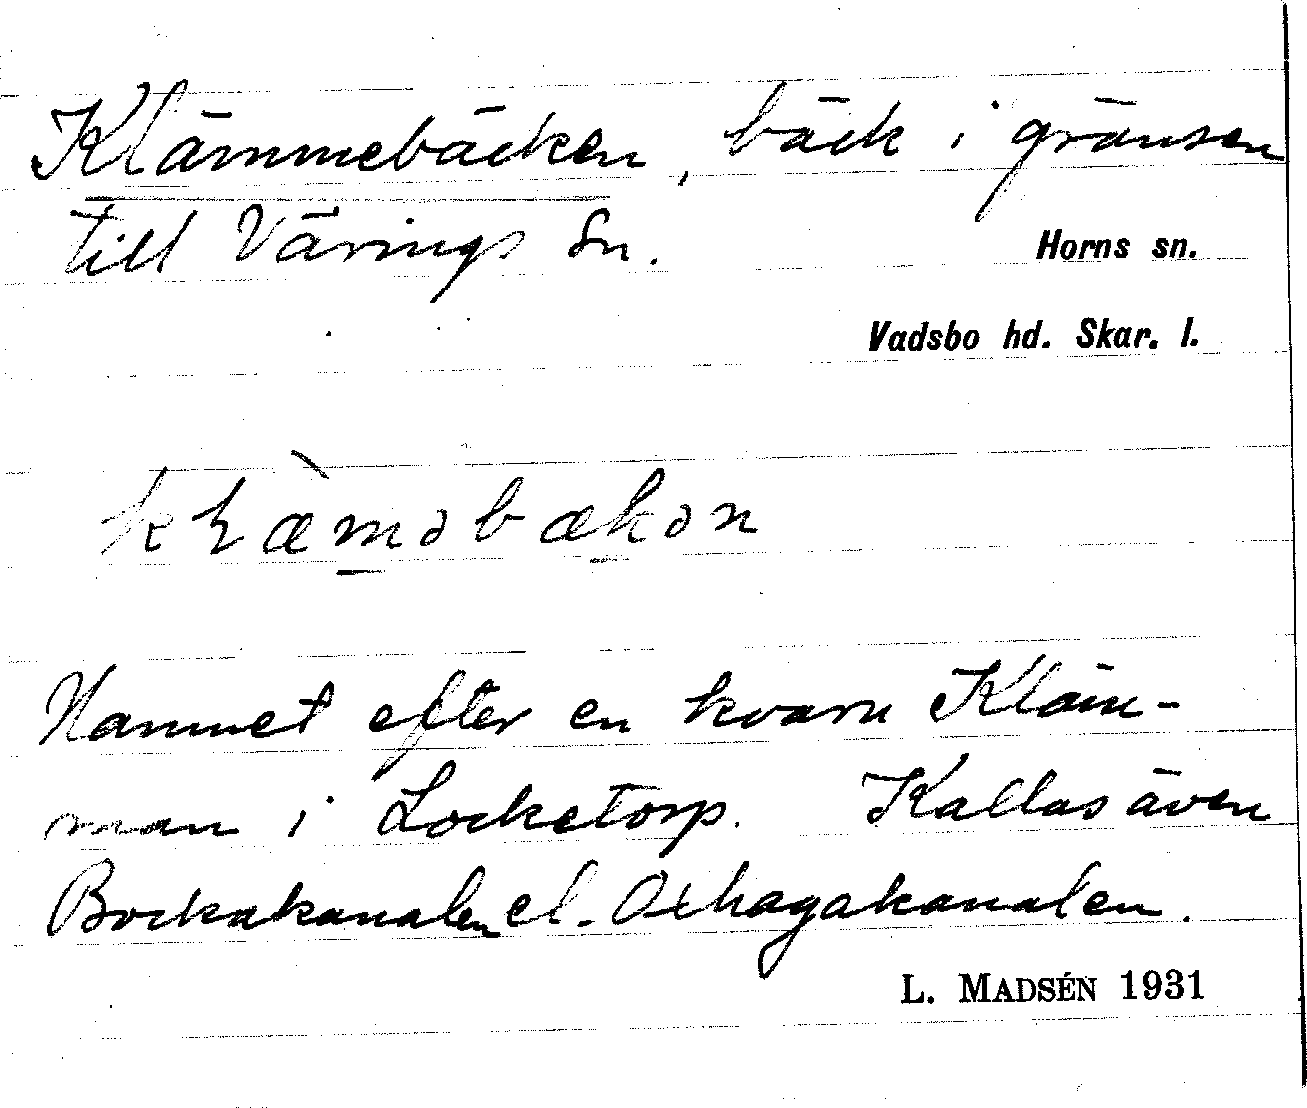 Klämmebäcken, bäck i gränsen
till Värings sn.
Horns sn.
Vadsbo hd. Skar. l.
klæ̀məbækən
Namnet efter en kvarn Kläm-
man i Locketorp. Kallas även
Bockakanalen el. Oxhagakanalen.
L. MADSÉN 1931